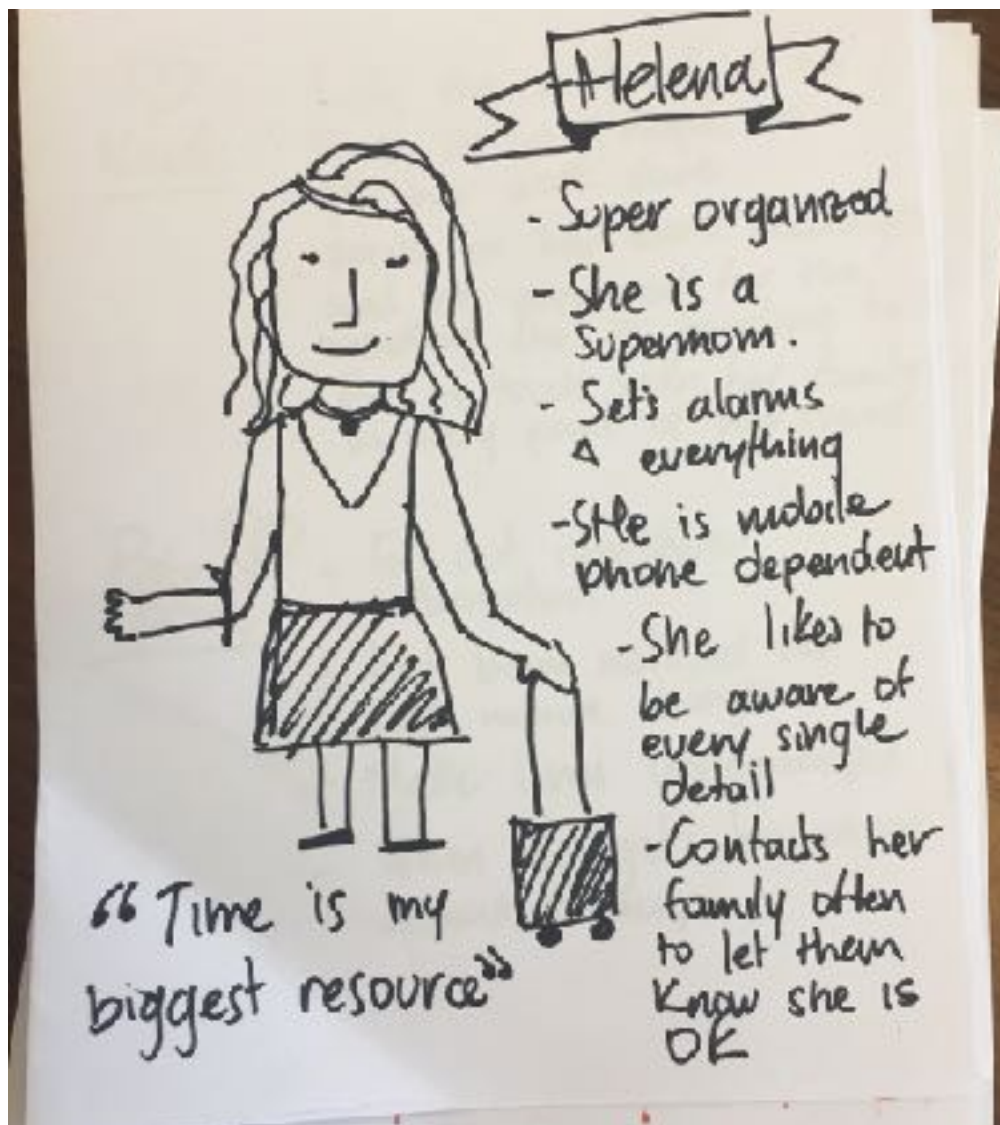 Helena
- Super organized
- She is a
supermom.
- Sets alarms
4 everything
- SHe is mobile
phone dependent
- She likes to
be aware of
every single
detail
- Contacts her
family often
to let them
know she is
OK
“Time is my
biggest resource”